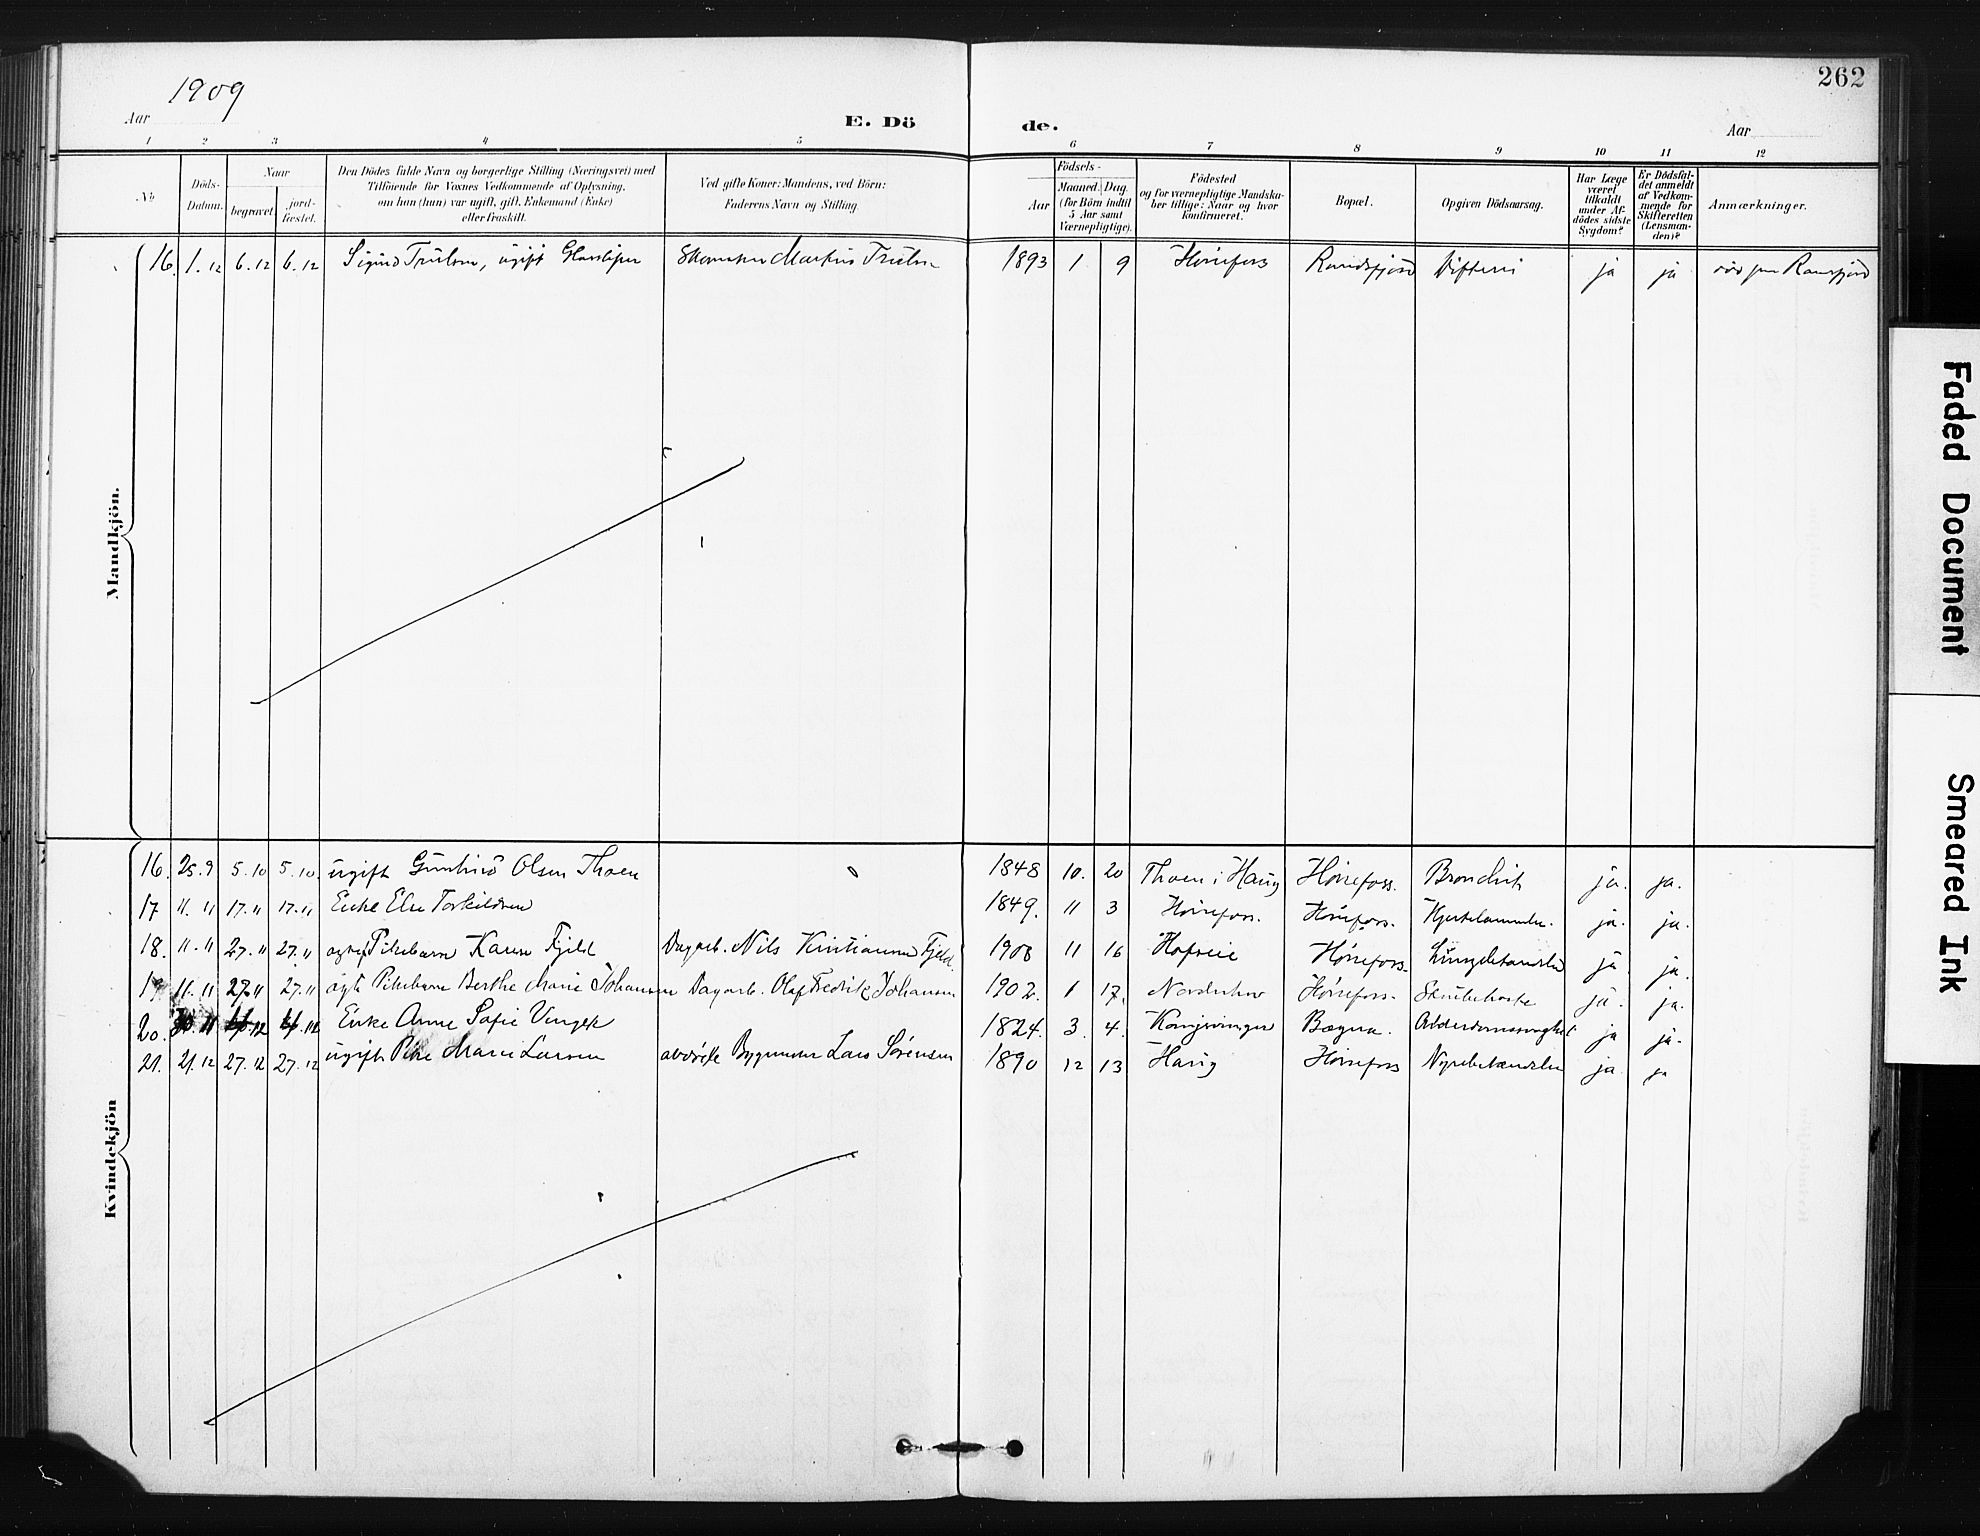 262
1909
Aar
E. Dö
de.
Aar
1 2 3 4 5 6 7 8 9 10 11 12
No
Döds-Datum.
Naar
begravet.
jord-fæstet.
Den Dödes fulde Navn og borgerlige Stilling (Næringsvei) med
Tilföiende for Voxnes Vedkommende af Oplysning,
om han (hun) var ugift, gift, Enkemand (Enke)
eller fraskilt.
Ved gifte Koner: Mandens, ved Börn:
Faderens Navn og Stilling.
Födsels-
Aar
Maaned. Dag.
(for Börn indtil
5 Aar samt
Værnepligtige).
Födested
og for værnepligtige Mandska-
ber tillige: Naar og hvor
konfirmeret.
Bopæl.
Opgiven Dödsaarsag.
Har Læge
været
tilkaldt
under Af-
dödes sidste
Sygdom?
Er Dödsfal-
det anmeldt
af Vedkom-
mende for
Skifteretten
(Lensman-
den)?
Anmærkninger.
Mandkjön.
16. 1.12 6.12 6.12 Sigurd Trulsen, ugift Markus Trulsen 1893 1 9 Hønefoss Randsfjord Difteri ja ja
Kvindekjön
16. 25.9 5.10 5.10. ugift Olsen Thoen 1848 10. 20 Thoen i Haug Hønefoss. Bronchit ja. ja.
17 11. 11 17.11 17.11 Enke Else Torkildsen 1849. 11 3 Hønefoss. Hønefoss. Hjertelammelse. ja. ja.
18. 11.11 27.11 27.11 ægte Pikebarn Karen Fjeld Dagarb. Nils Kristiansen Fjeld. 1908 11 16 Hønefoss. Lungebetændelse ja ja.
19 11.11 27.11 27.11 ægte Pikebarn Berthe Marie Johansen Dagarb. Olaf Fredrik Johansen 1902. 1 17. Norderhov Hønefoss. ja. ja.
20. 30.11 4.12 4.12 Enke Anne Sofie 1824. 3. 4. Kongsvinger Bægna. Alderdomssvaghet ja ja.
21. 21.12 27.12 27.12 ugift Pike Marie Larsen Lars Sørensen 1890 12 13 Haug Hønefoss Nyrebetændelse ja ja
Faded Document
Smeared Ink